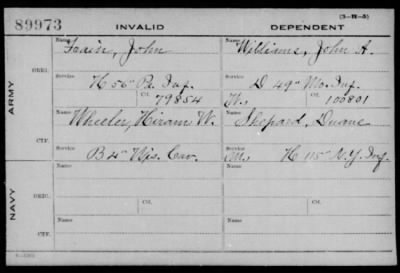 89973 INVALID DEPENDENT (3-H-5)
ARMY ORIG. Name Fain, John Name Williams, John A.
Service H 56" Pa. Inf. Service D 49" Mo. Inf.
Ctf. 79854 W. Ctf. 100801
CTF. Name Wheeler, Hiram W. Name Shepard, Duane
Service B 4" Wis. Cav. Service M. H 115" N.Y. Inf.
NAVY ORIG. Name Name
Service Ctf. Service Ctf.
CTF. Name Name
Service Service